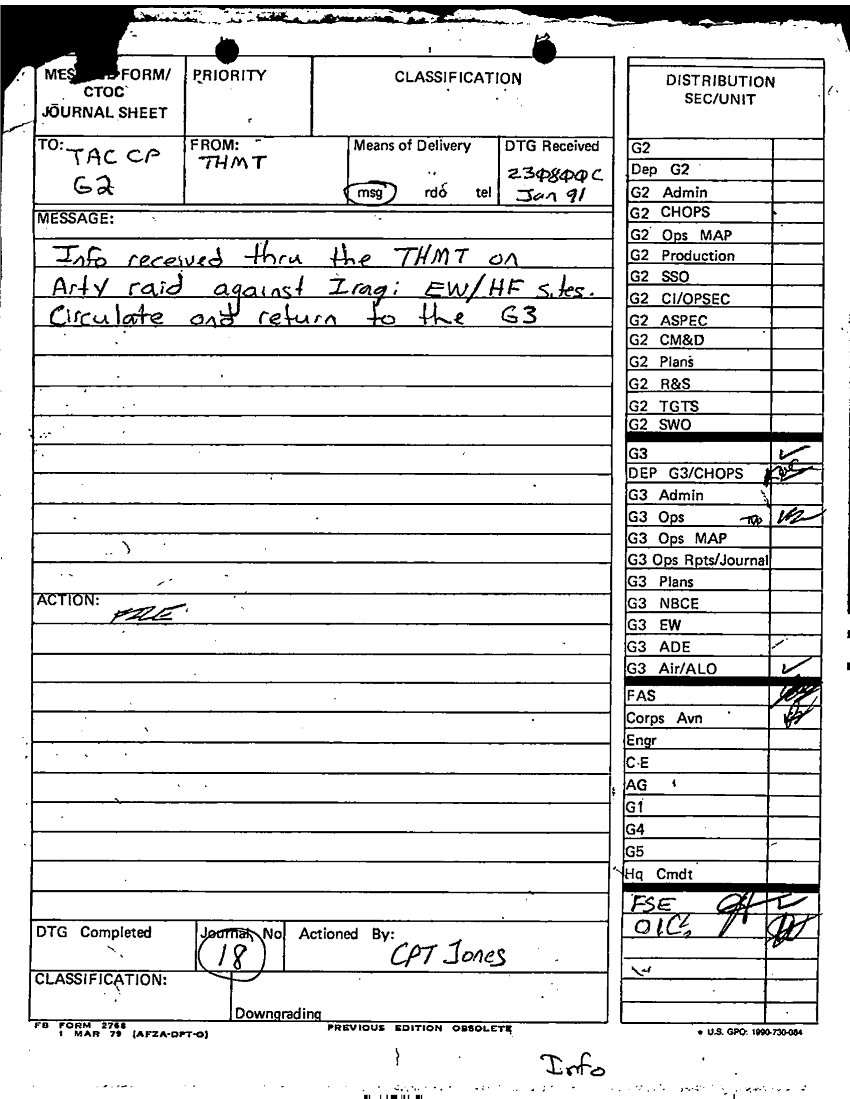 MESSAGE FORM/
CTOC
JOURNAL SHEET
PRIORITY
CLASSIFICATION
TO: TAC CP
G2
FROM:
THMT
Means of Delivery
msg rdo tel
DTG Received
230800C
Jan 91
MESSAGE:
Info received thru the THMT on
Arty raid against Iraqi EW/HF sites.
Circulate and return to the G3
ACTION:
FILE
DTG Completed
Journal No
18
Actioned By:
CPT Jones
CLASSIFICATION:
Downgrading
FB FORM 2768
1 MAR 79 (AFZA-DPT-O)
PREVIOUS EDITION OBSOLETE
DISTRIBUTION
SEC/UNIT
G2
Dep G2
G2 Admin
G2 CHOPS
G2 Ops MAP
G2 Production
G2 SSO
G2 CI/OPSEC
G2 ASPEC
G2 CM&D
G2 Plans
G2 R&S
G2 TGTS
G2 SWO
G3
DEP G3/CHOPS
G3 Admin
G3 Ops
G3 Ops MAP
G3 Ops Rpts/Journal
G3 Plans
G3 NBCE
G3 EW
G3 ADE
G3 Air/ALO
FAS
Corps Avn
Engr
C-E
AG
G1
G4
G5
Hq Cmdt
FSE
OIC
* U.S. GPO: 1990-730-084
Info